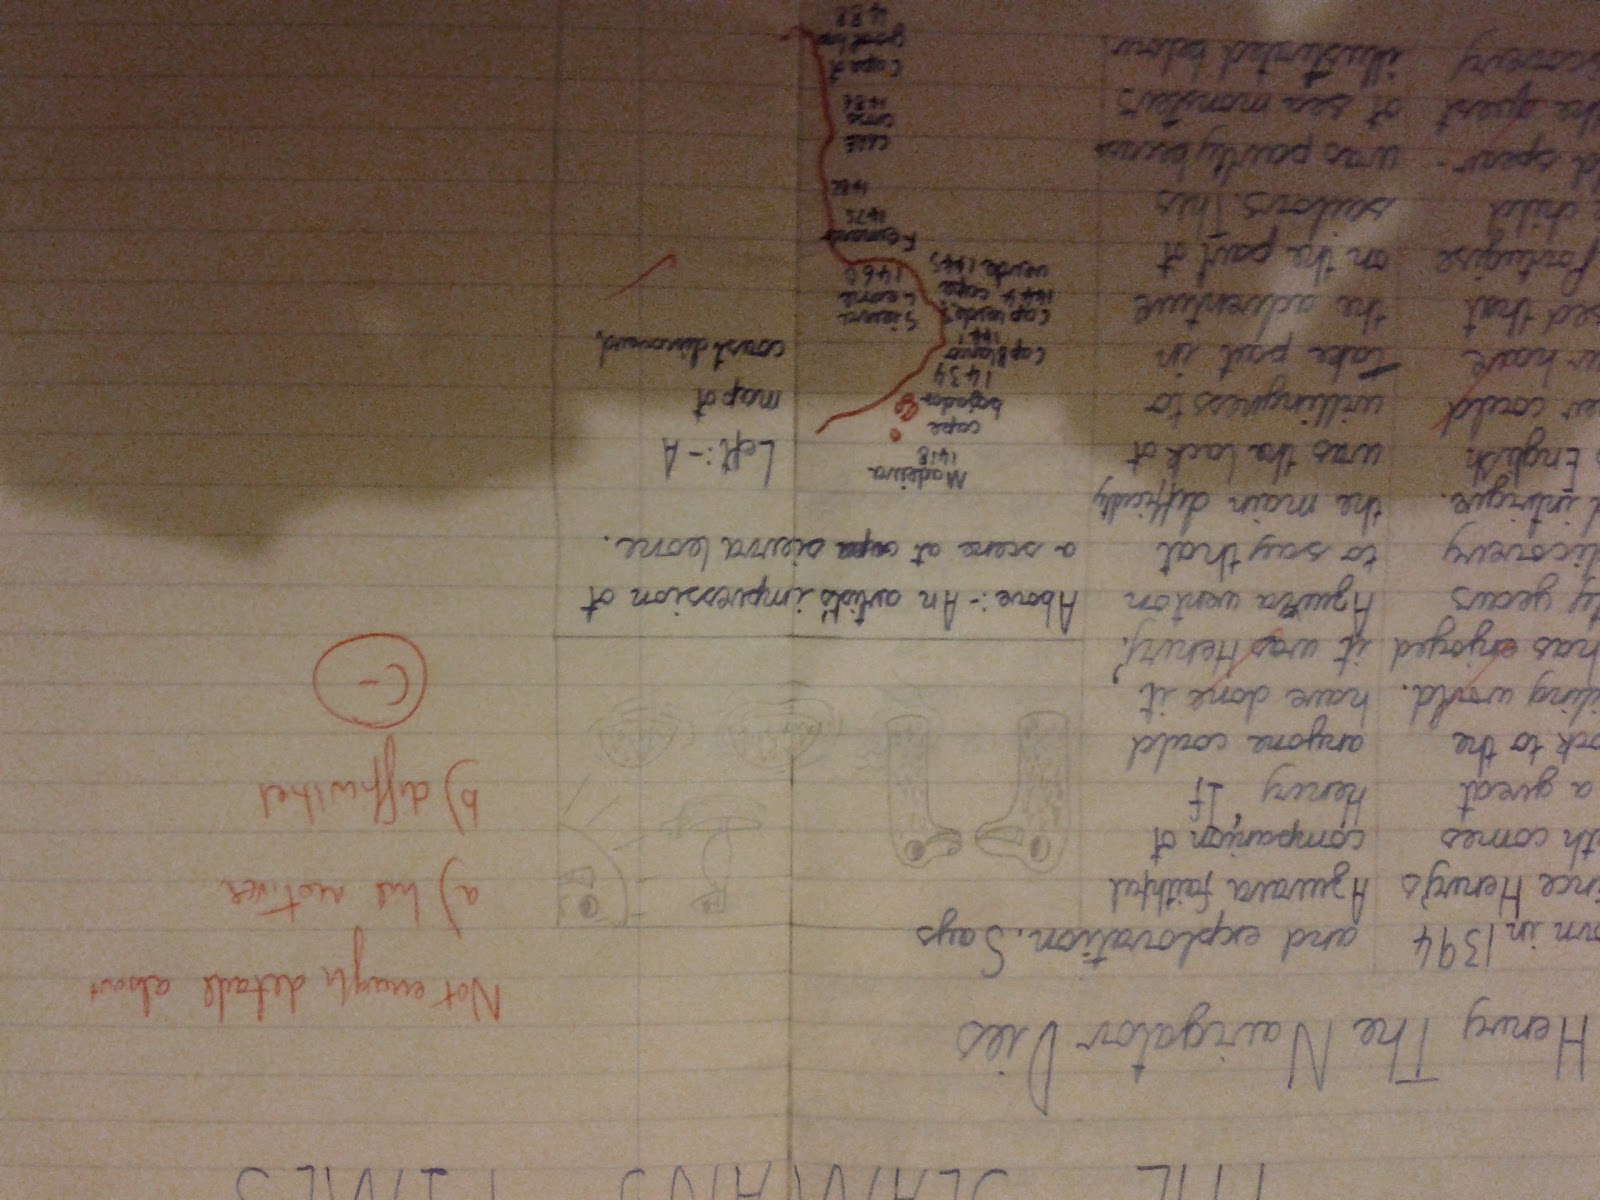 THE SEAMANS TIMES
Henry The Navigator Dies
orn in 1394
ince Henry's
ith comes
a great
ock to the
iling world.
has enjoyed
ty years
discovery
d intrigue.
s English
er could
ur have
sed that
Portugise
child
d spear-
the quest
iscovery
and exploration. Says
Azurara faithful
companion of
Henry, 'If
anyone could
have done it
it was Henry.'
Azurra went on
to say that
the main difficulty
was the lack of
willingness to
take part in
the adventure
on the part of
sailors. This
was partly because
of sea monsters
illustrated below.
Above:- An artists impression of
a scene at sierra leone.
Madeira
1418
cape
bojador
1434
Cap Blanco
1441
Cap verde
1444 cape
verde 1445
Sierra
Leone
1460
Fernando
1475
1482
Cape
cross
1486
Cape of
good hope
1488
Left:- A
map of
coast discovered.
Not enough details about
a) his motives
b) difficulties
C-